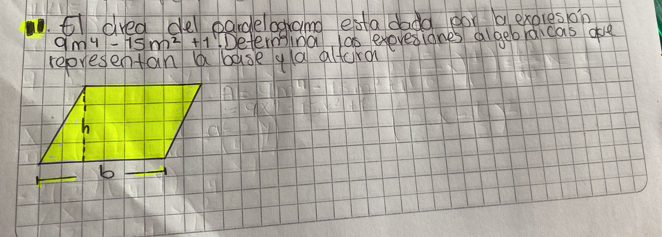 11. El area del paralelogramo esta dada por la expresión
9m⁴ - 15m² + 1. Determina las expresiones algebraicas que
representan la base y la altura
h
b